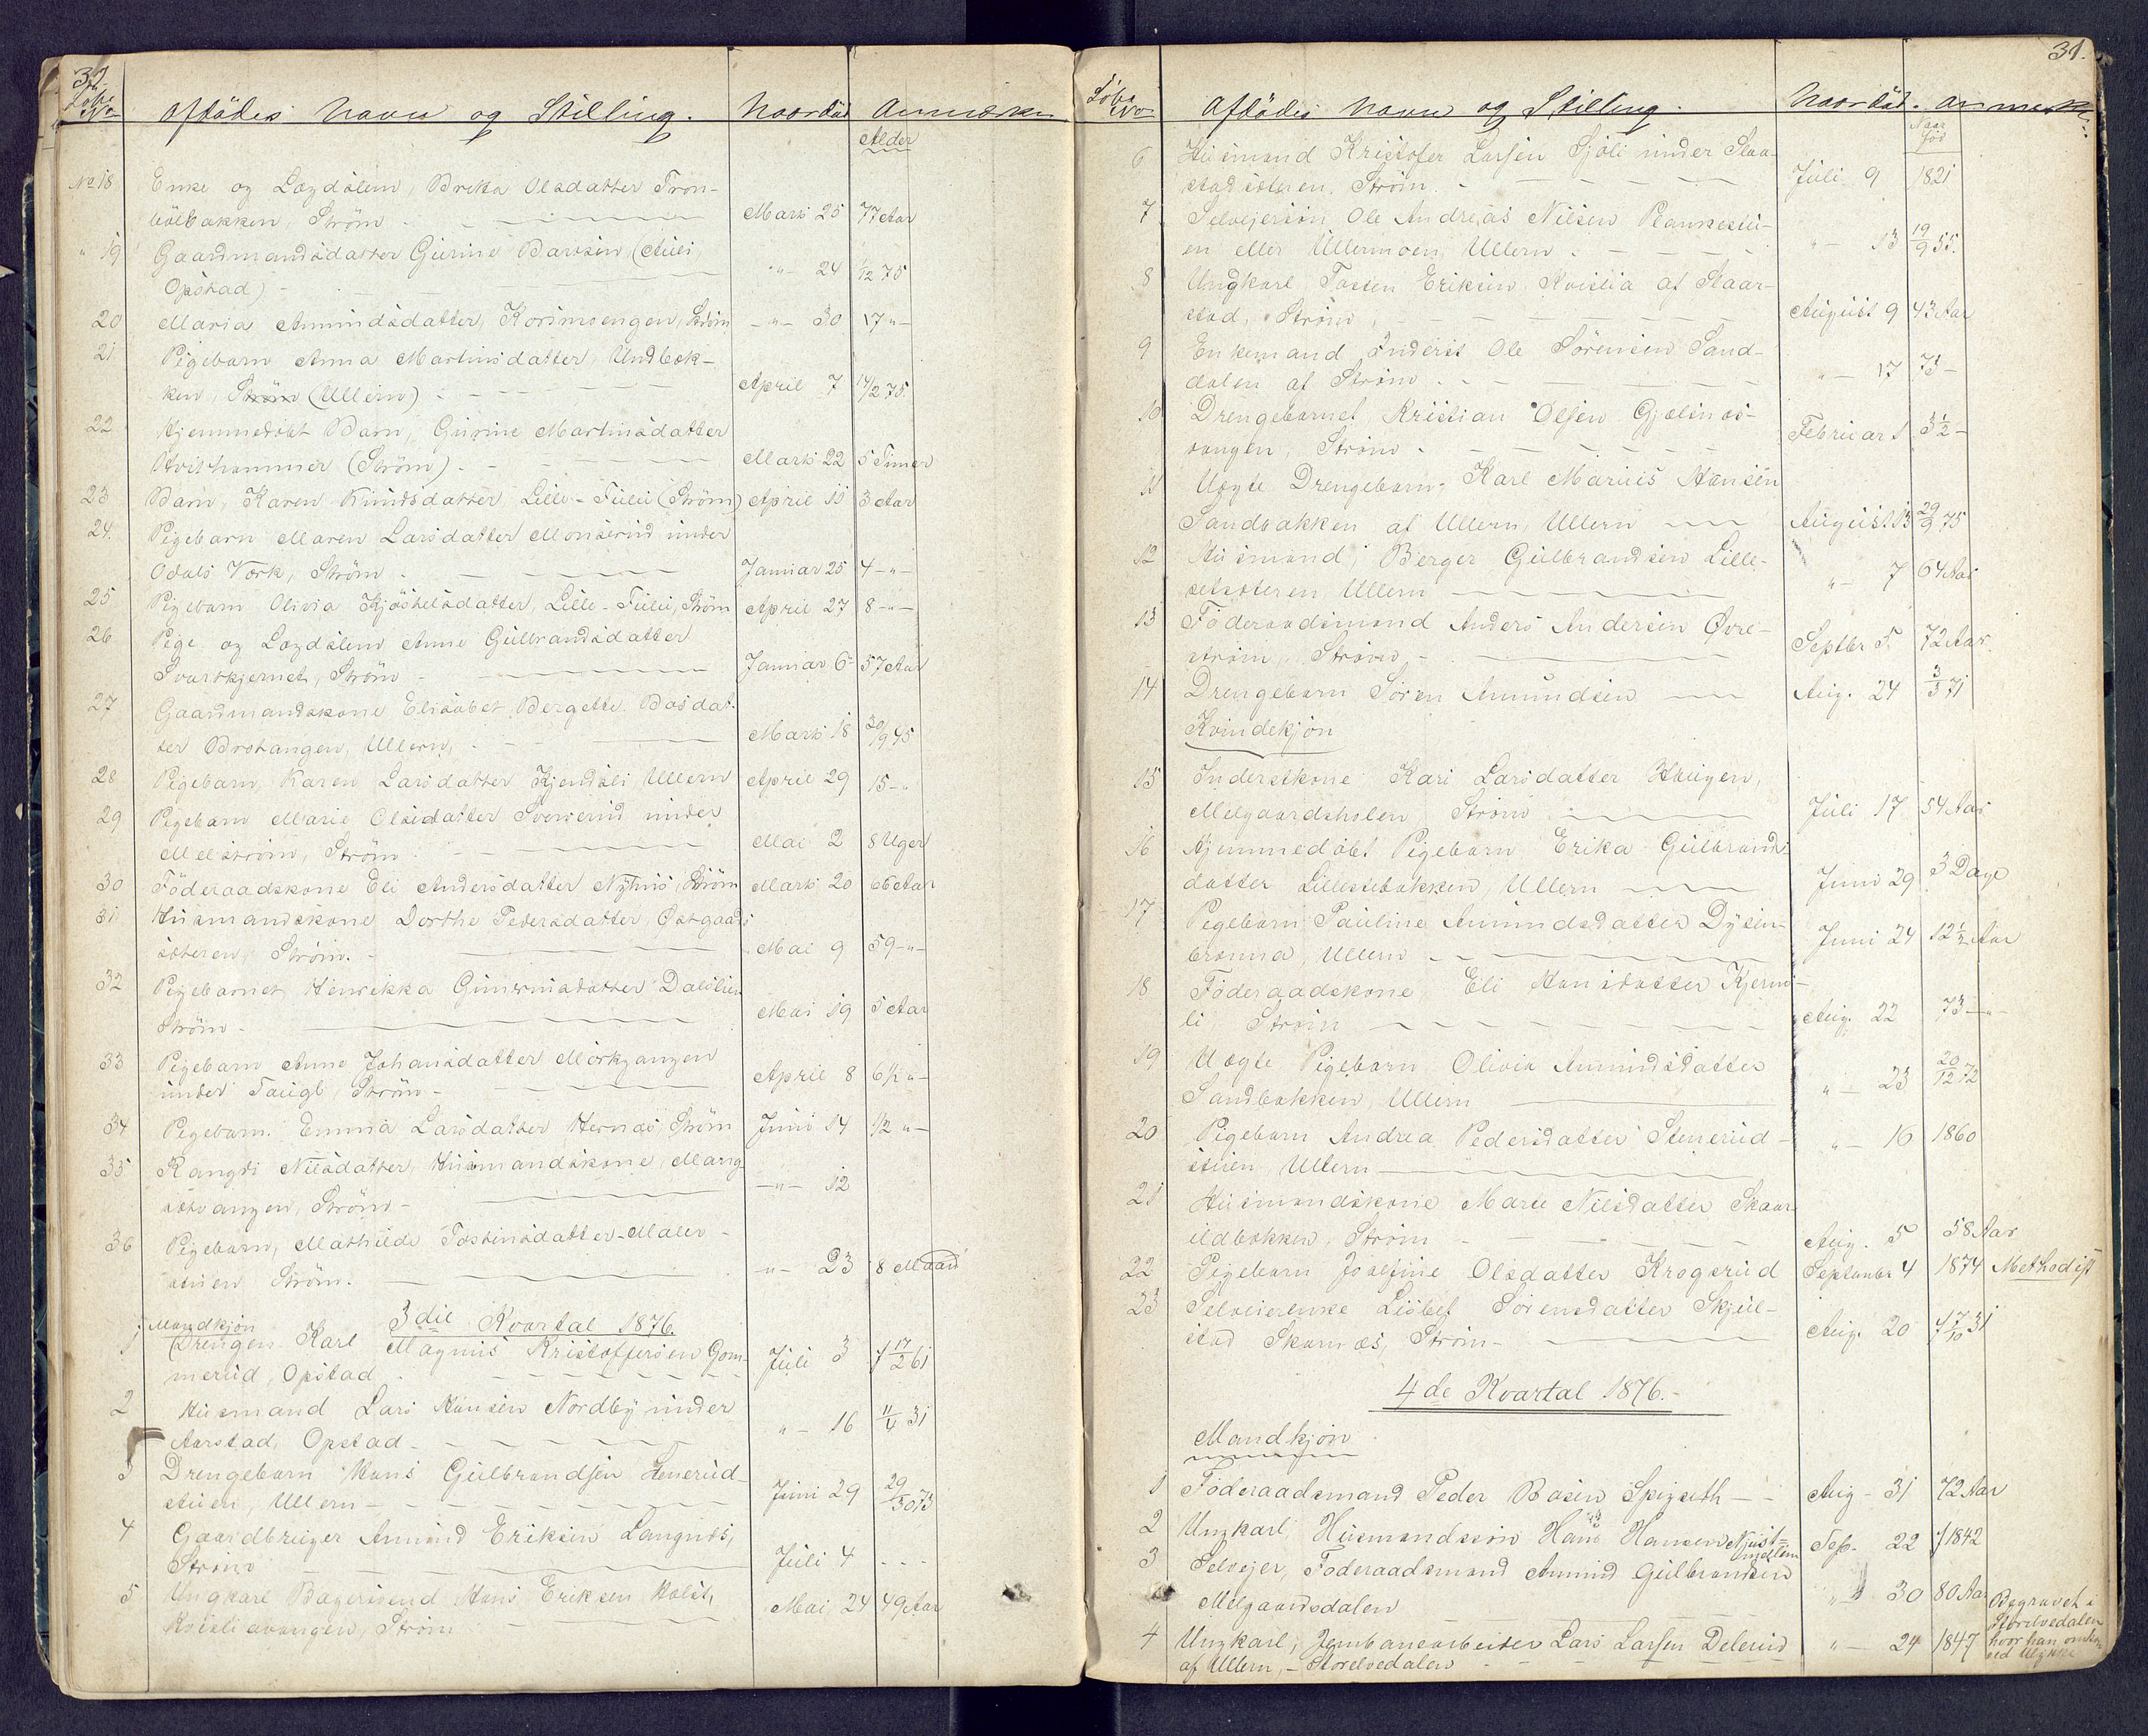 30.
Löbe No
Afdödes Navn og Stilling.
Naardöd
Anmærkn
Alder
No 18 Enke og Lægdslem, Brita Olsdatter Tron-
bölbakken, Ström - Mars 25 77 Aar
" 19 Gaardmandsdatter Gurine Barosen (Auli
Opstad) - " - 24 1/12 75
20 Maria Amundsdatter, Korsmoengen, Ström - " - 30 17 " -
21 Pigebarn Anna Martinsdatter Undbek-
ken, Ström (Ullern) - April 7 14/2 75
22 Hjemmedöbt Barn, Gurine Martinsdatter
Hvithammer (Ström). - Mars 22 5 Timer
23 Barn, Karen Knudsdatter Lille-Fulu (Ström) April 11 3 Aar
24. Pigebarn Maren Larsdatter Monserud under
Odals Værk, Ström. Januar 25 4 - " -
25 Pigebarn Olivia Kjöstelsdatter, Lille-Fulu, Ström April 27 8 - " -
26 Pige og Lægdslem Anne Gulbrandsdatter
Svartkjernet, Ström - Januar 6 57 Aar
27 Gaardmandskone Elisabet Bergette Bosdat-
ter Brotangen, Ullern, Mars 18 30/9 45
28 Pigebarn, Karen Larsdatter Kjendsli, Ullern April 29 15 - "
29 Pigebarn Marie Olsdatter Sverserud under
Melström, Ström Mai 2 8 Uger
30 Föderaadskone Eli Andersdatter Nyhus, Ström Mars 20 66 Aar
31 Husmandskone Dorthe Pedersdatter, Östgaards
æteren, Ström. - Mai 9 59 - " -
32 Pigebarnet Henrikka Gunerusdatter Dalslien
Ström - Mai 19 5 Aar
33 Pigebarn Anne Johansdatter Mörkgangen
under Taugl, Ström - April 8 6 1/2 " -
34 Pigebarn. Emma Larsdatter Hernæs Ström Juni 14 1/2 " -
35 Rangdi Nilsdatter, Husmandskone, Mang
sætvangen, Ström - - " - 12
36 Pigebarn, Mathilde Tostensdatter Maler -
stuen Ström. - " - 23 8 Maan
3die Kvartal 1876.
Mandkjön
1 Drengen Karl Magnus Kristoffersen Gom-
merud, Opstad Juli 3 f 17/2 61
2 Husmand Lars Hansen Nordby under
Aarstad, Opstad - " - 16 11/4 31
3 Drengebarn Hans Gulbrandsen Stenerud-
stuen, Ullern - Juni 29 29/30 73
4 Gaardbruger Amund Eriksen Langnæs,
Ström Juli 4 - - -
5 Ungkarl Bagersvend Hans Eriksen Holst,
Kvisliavangen, Ström Mai 24 49 Aar
31.
Löbe No
Afdödes Navn og Stilling.
Naardöd.
Anmærk
Naar
föd
6 Husmand Kristofer Larsen Sjöli under Staa-
stad æteren, Ström. - Juli 9 1821
7 Selvejersön Ole Andreas Nilsen Plankestu-
en eller Ullernmoen, Ullern. " - 13 19/9 55.
8 Ungkarl Tosten Eriksen, Kvislia af Skaar-
stad, Ström, August 9 43 Aar
9 Enkemand Inderst Ole Sörensen Sand-
dalen af Ström. " - 17 73 -
10 Drengebarnet Kristian Olsen Gjælnæs-
vangen, Ström. Februar 1 3 1/2 -
11 Uægte Drengebarn, Karl Marius Hansen
Sandbakken af Ullern, Ullern August 13 29/9 75
12 Husmand, Berger Gulbrandsen Lille-
setsæteren Ullern " - 7 64 Aar
13 Föderaadsmand Anders Andersen Övre-
ström, Ström - Septbr 5. 72 Aar.
14 Drengebarn Sören Amundsen Aug. 24 3/3 71
Kvindekjön
15 Inderstkone Kari Larsdatter Haugen,
Melgaardsholen Ström. Juli 17 54 Aar
16 Hjemmedöbt Pigebarn Erika Gulbrands
datter Lillesetbakken, Ullern Juni 29 3 Dage
17 Pigebarn Pauline Amundsdatter Dysen-
bronna, Ullern Juni 24 12 1/2 Aar
18 Föderaadskone, Eli Hansdatter Kjerns-
li, Ström Aug. 22 73 - " -
19 Uægte Pigebarn Olivia Amundsdatter
Sandbakken, Ullern " - 23 20/12 72
20 Pigebarn Andrea Pedersdatter Stenerud-
stuen, Ullern " - 16 1860
21 Husmandskone Marte Nilsdatter Skaar
ildbakken, Ström Aug. 5 58 Aar
22 Pigebarn Josefine Olsdatter Krogsrud Septembr 4 1874 Methodist
23 Selveierenke Lisbet Sörensdatter Skjul-
stad Skarnæs, Ström - Aug. 20 f 17/10 31
4de Kvartal 1876.-
Mandkjön
1 Föderaadsmand Peder Bosen Spigseth - - Aug - 31 72 Aar
2 Ungkarl, Husmandssön Hans Hansen Njust= Sep. 22 f 1842
3 Selvejer, Föderaadsmand Amund Gulbrandsen
Melgaardsdalen " 30 80 Aar
4 Ungkarl, Jernbanearbeider Lars Larsen Delerud " - 24 1847 Begravet i
Storelvedalen
hvor han omkom
ved Ulykke
af Ullern, - Storelvedalen